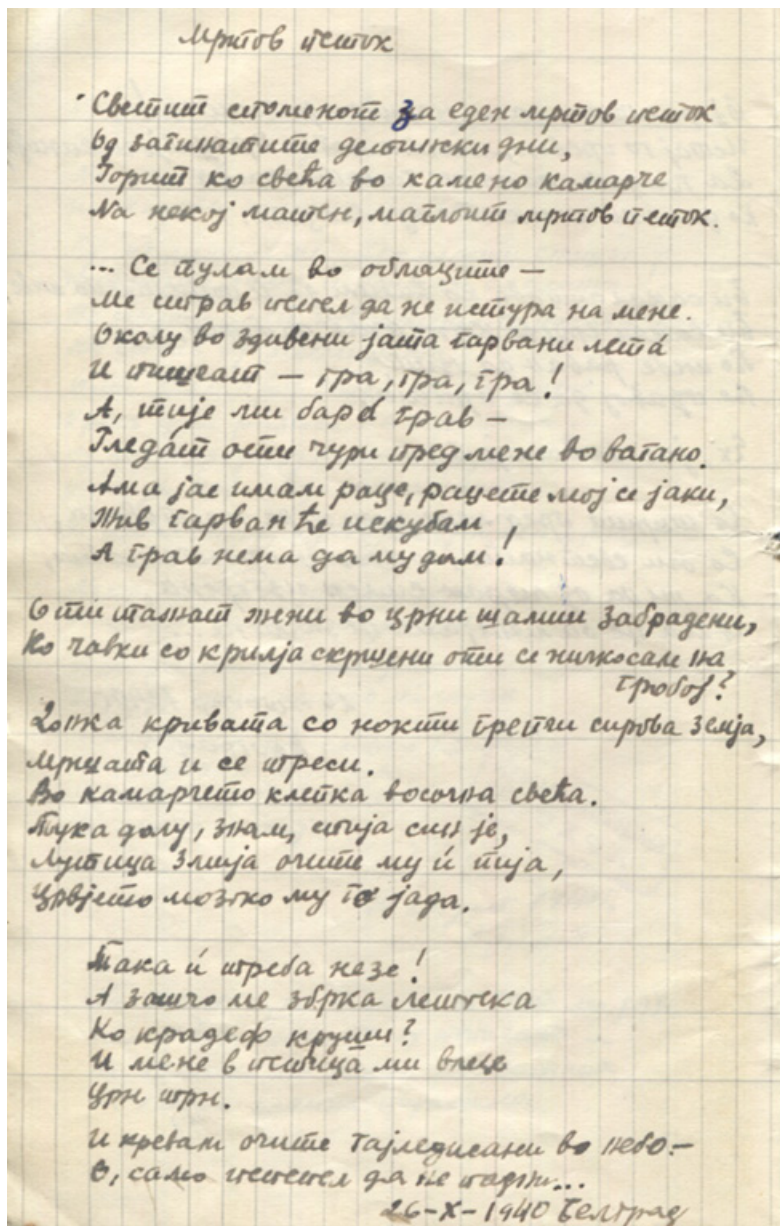 Мртов петок
Светит споменот за еден мртов петок
Од загинатите детински дни,
Горит ко свеќа во камено камарче
На некој матен, маглоит мртов петок.
... Се пулам во облаците —
Ме страв пепел да не истура на мене.
Околу во здивени јата гарвани лета
И пишчат — гра, гра, гра!
А, тије ми бара грав —
Гледат оти чури пред мене во ватано.
Ама јас имам раце, рацете мој се јаки,
Жив гарван ќе искубам,
А грав нема да му дам!
Оти плачат жени во црни шамии забрадени,
Ко чавки со крилја скршени оти се ничкосале на
гробој?
Донка кривата со нокти грепчи сирова земја,
Мрцата и се треси.
Во камарчето клепка восочна свеќа.
Тука долу, знам, спија син је,
Лутица змија очите му ѝ пија,
Црвјето мозоко му го јада.
Така ѝ треба незе!
А зашчо ме збрка летоска
Ко крадеф круши?
И мене в петица ми влезе
Црн трн.
И кревам очите гајледисани во небо. —
О, само пепел да не падни...
26-X-1940 Белград